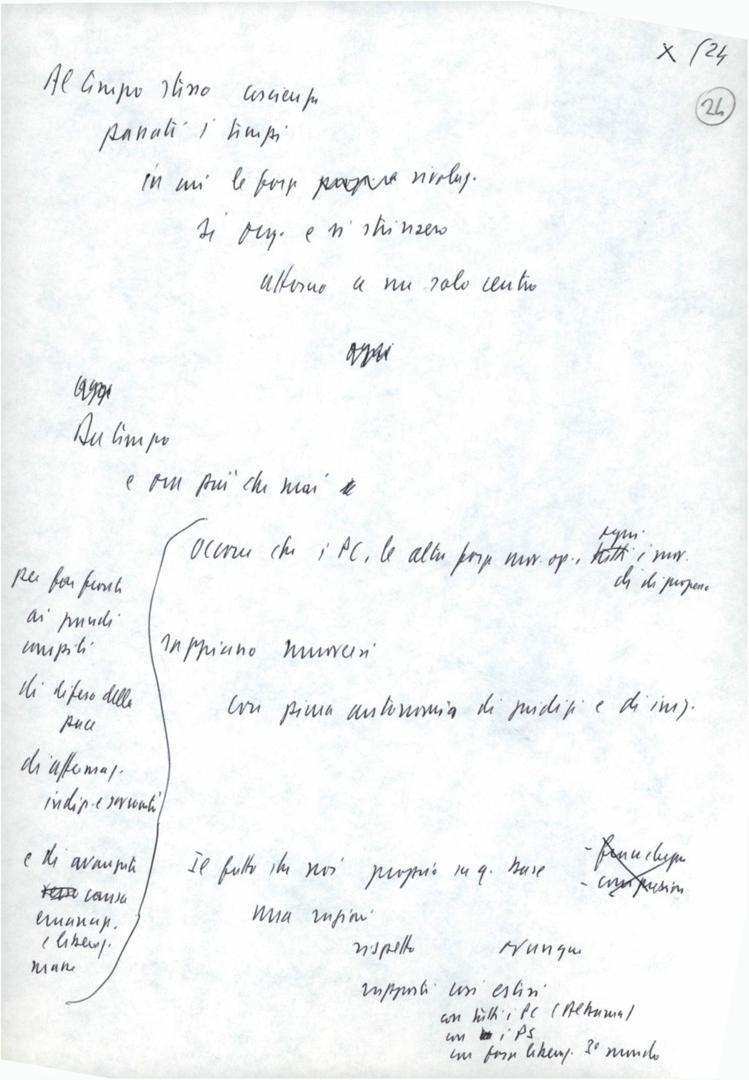 X /24
24
Al tempo stesso coscienza
passati i tempi
in cui le forze rivoluz.
si org. e si strinsero
attorno a un solo centro
oggi
oggi
Au tempo
e ora più che mai
Occorre che i PC, le altre forze mov. op., tutti i mov.
ogni
di di progresso
per far fronte
ai grandi
compiti
di difesa della
pace
di affermaz.
indip. e sovranità
e di avanzata
causa
emancip.
e liberaz.
umana
sappiano muoversi
con piena autonomia di giudizi e di iniz.
Il fatto che noi proprio su q. base
una ragione
rispetto ovunque
rapporti così estesi
con tutti i PC (Altissimo)
con i PS
con forze liberaz. 3° mondo
- franchezza
- comprensione